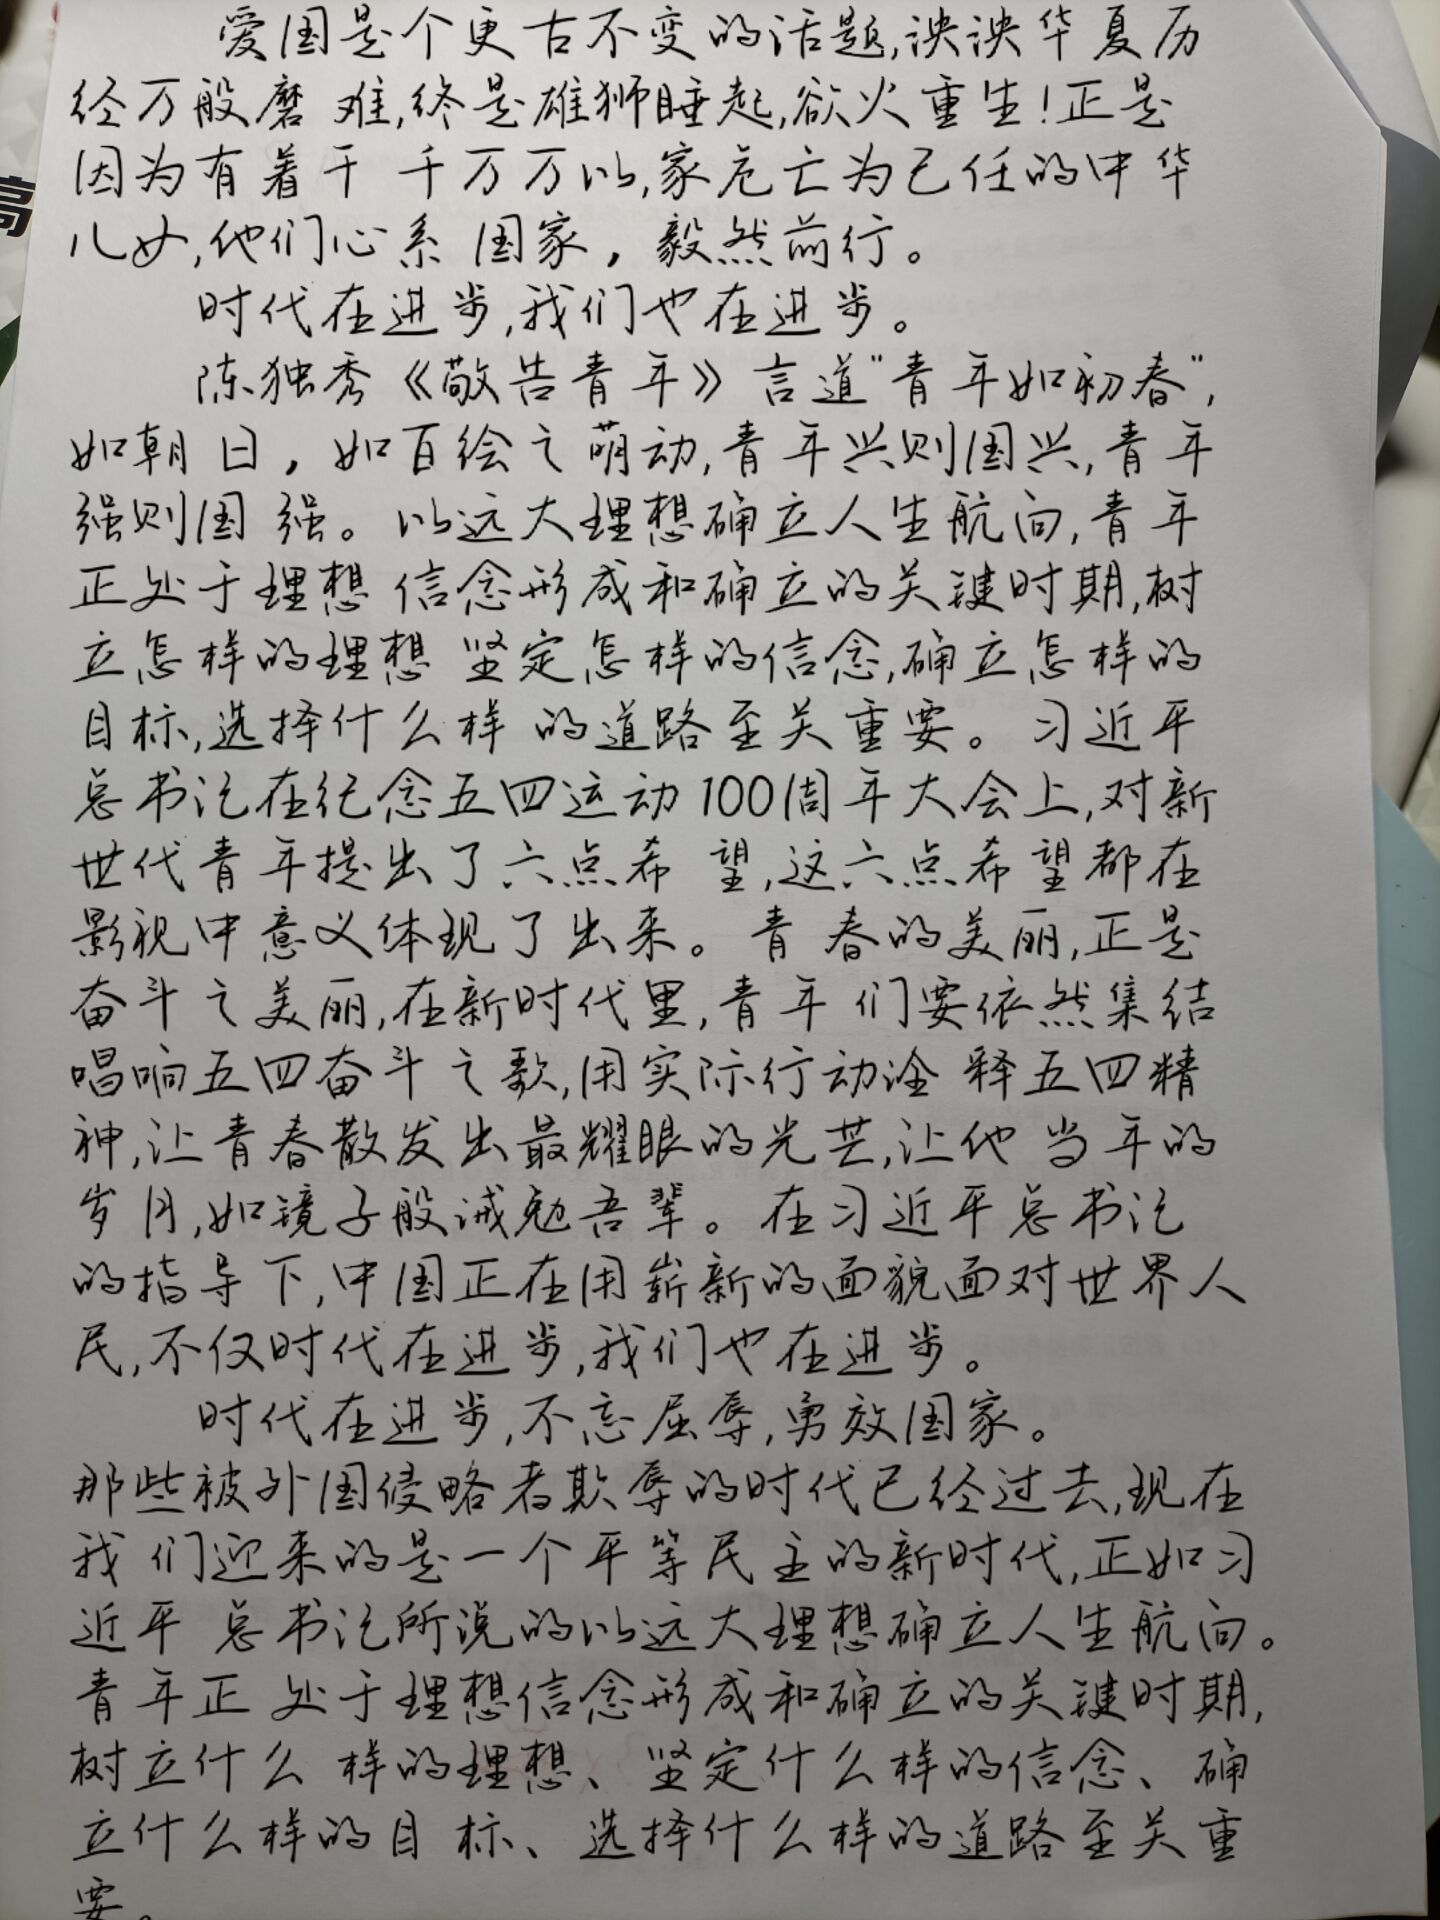 爱国是个更古不变的话题,泱泱华夏历
经万般磨难,终是雄狮睡起,欲火重生!正是
因为有着千千万万以,家危亡为己任的中华
儿女,他们心系国家，毅然前行。
时代在进步,我们也在进步。
陈独秀《敬告青年》言道"青年如初春",
如朝日，如百绘之萌动,青年兴则国兴,青年
强则国强。以远大理想确立人生航向,青年
正处于理想信念形成和确立的关键时期,树
立怎样的理想坚定怎样的信念,确立怎样的
目标,选择什么样的道路至关重要。习近平
总书记在纪念五四运动100周年大会上,对新
世代青年提出了六点希望,这六点希望都在
影视中意义体现了出来。青春的美丽,正是
奋斗之美丽,在新时代里,青年们要依然集结
唱响五四奋斗之歌,用实际行动诠释五四精
神,让青春散发出最耀眼的光芒,让他当年的
岁月,如镜子般诫勉吾辈。在习近平总书记
的指导下,中国正在用崭新的面貌面对世界人
民,不仅时代在进步,我们也在进步。
时代在进步,不忘屈辱,勇效国家。
那些被外国侵略者欺辱的时代已经过去,现在
我们迎来的是一个平等民主的新时代,正如习
近平总书记所说的以远大理想确立人生航向。
青年正处于理想信念形成和确立的关键时期,
树立什么样的理想、坚定什么样的信念、确
立什么样的目标、选择什么样的道路至关重
要。
高